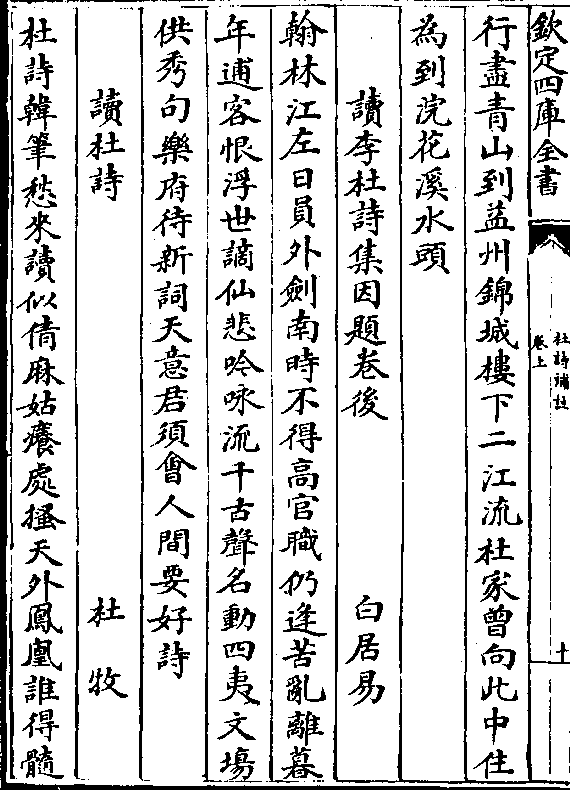 欽定四庫全書
杜詩補註
卷上
十
行盡青山到益州錦城樓下二江流杜家曾向此中住
為到浣花溪水頭
讀李杜詩集因題卷後 白居易
翰林江左日員外劍南時不得高官職仍逢苦亂離暮
年逋客恨浮世謫仙悲吟咏流千古聲名動四夷文塲
供秀句樂府待新詞天意君須會人間要好詩
讀杜詩 杜牧
杜詩韓筆愁來讀似倩麻姑癢處搔天外鳳凰誰得髓